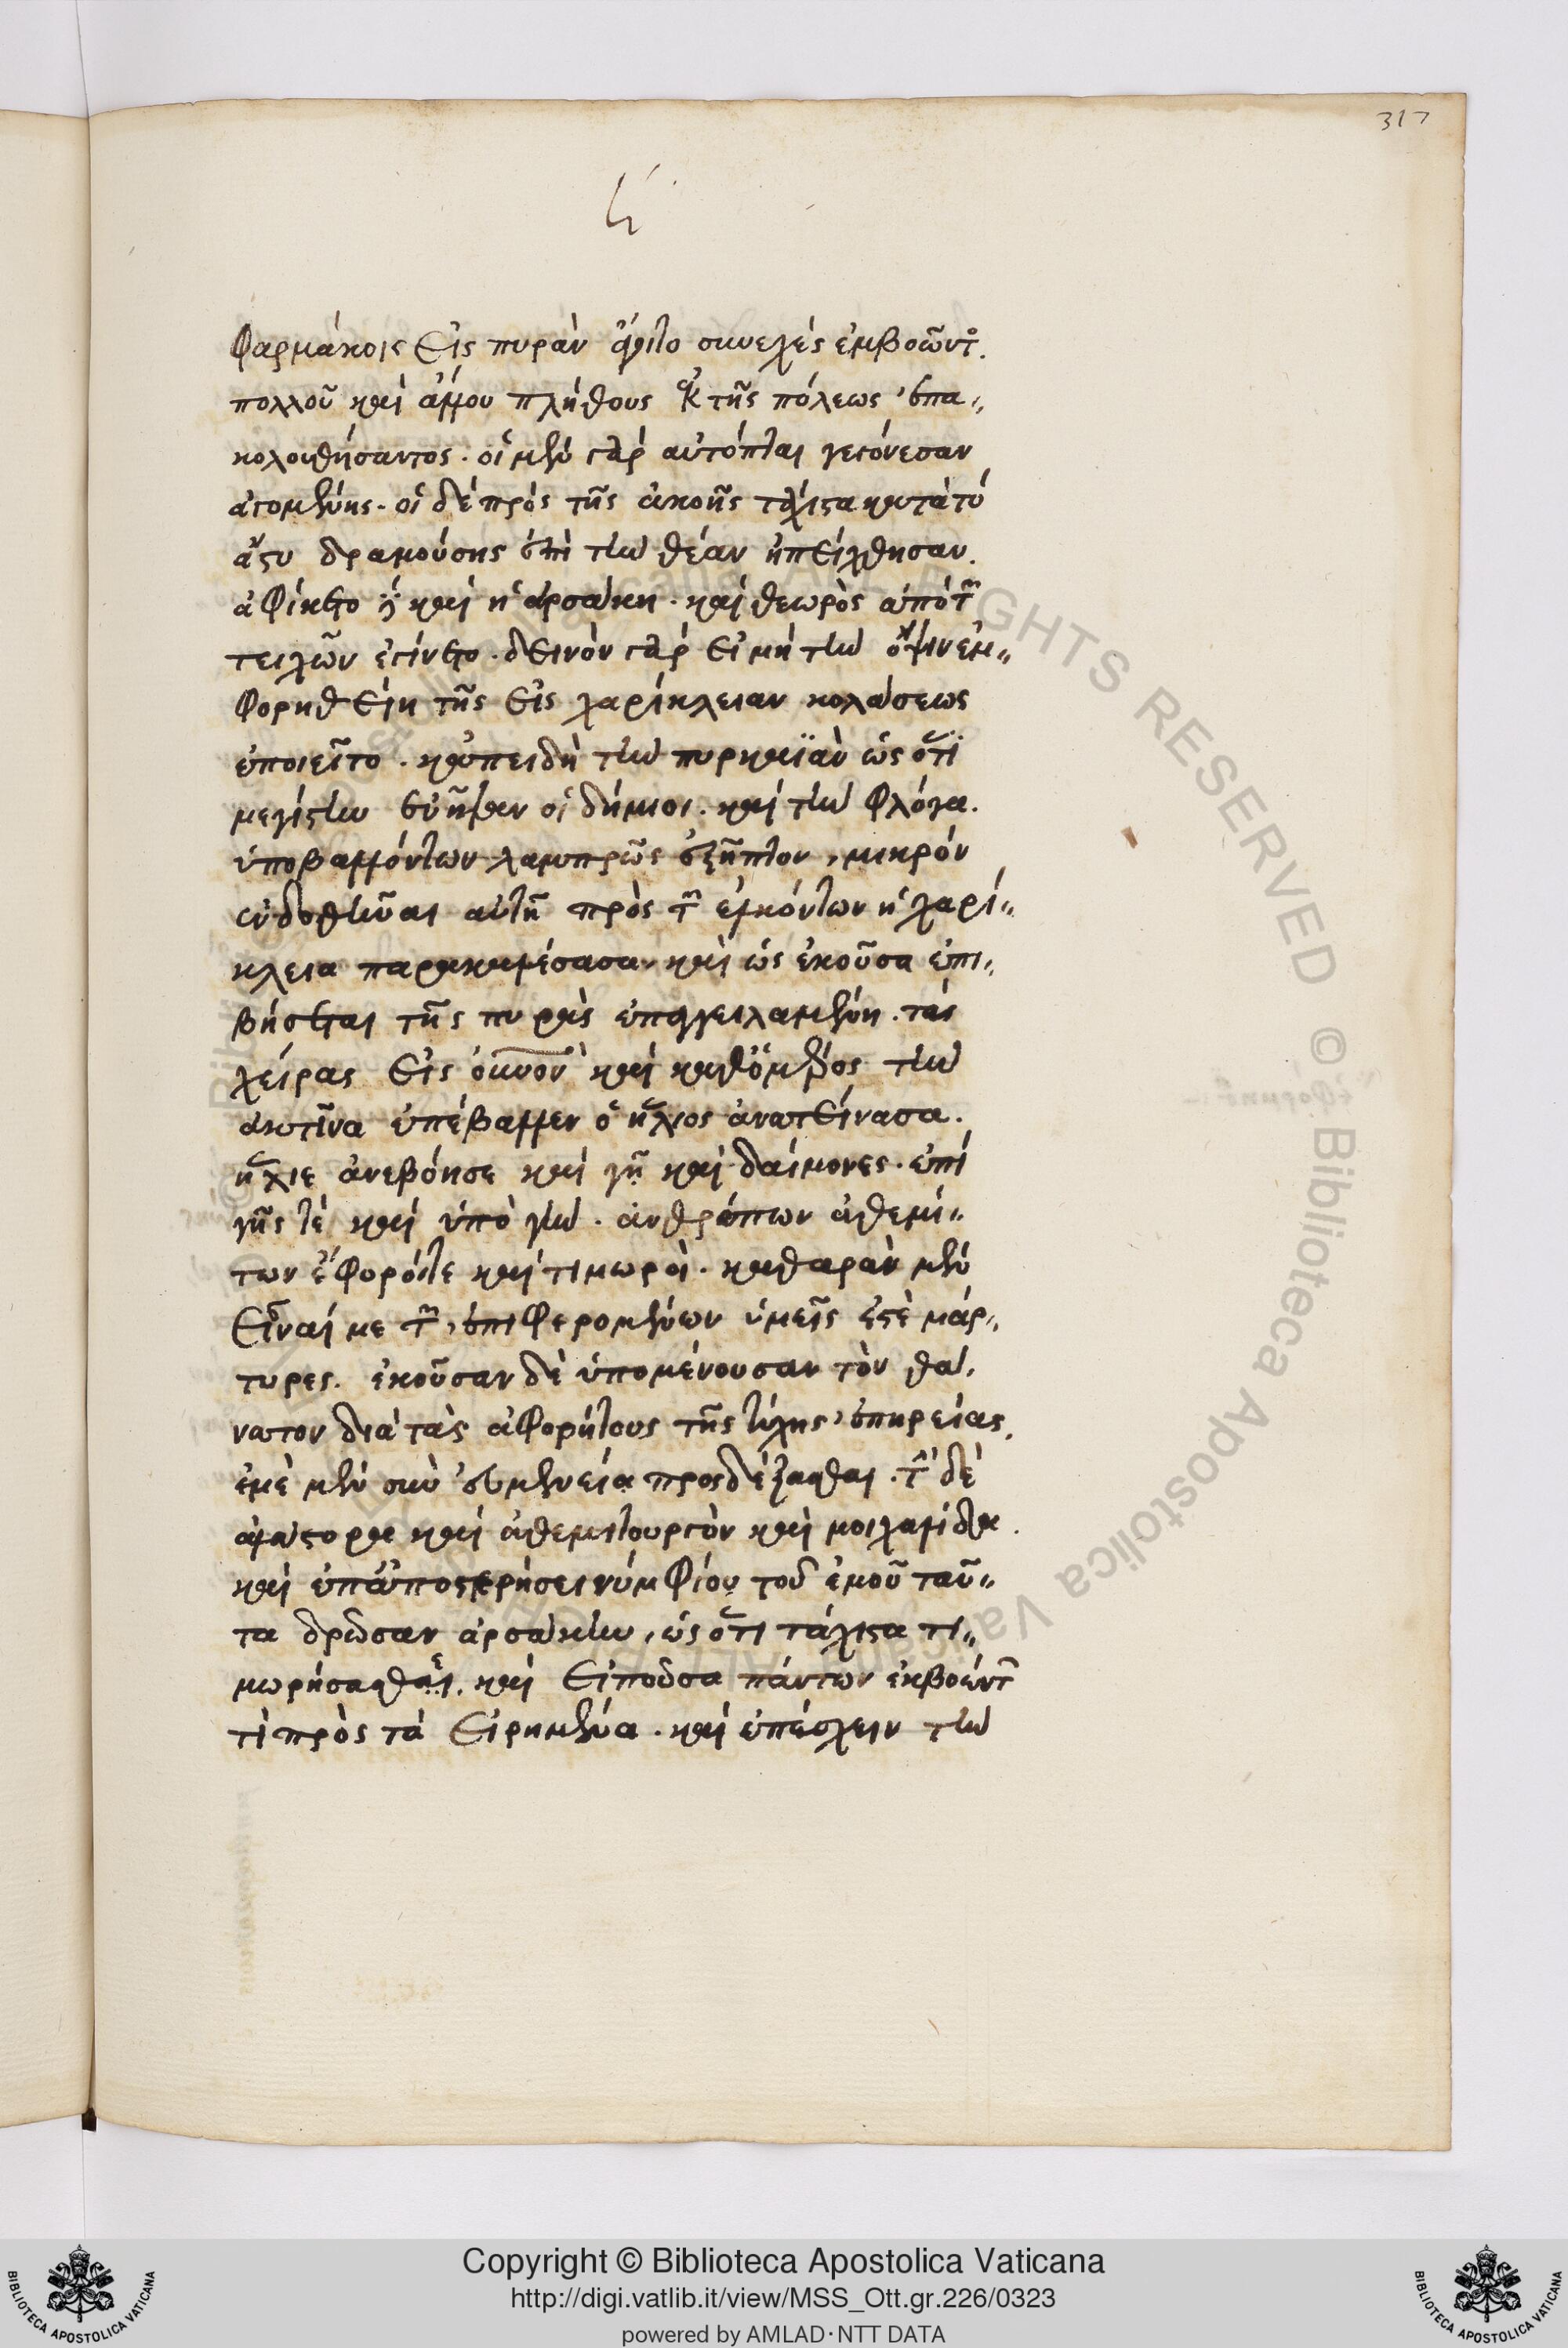 317
φαρμάκοις εἰς πυρὰν ἄγοιτο συνεχὲς ἐμβοῶντος.
πολλοῦ καὶ ἄλλου πλήθους ἐκ τῆς πόλεως ἐπα„
κολουθήσαντος. οἱ μὲν γὰρ αὐτόπται γεγόνεσαν
ἀγομένης. οἱ δὲ πρὸς τῆς ἀκοῆς τάχιστα κατὰ τὸ
ἄστυ δραμούσης ἐπὶ τὴν θέαν ἠπείχθησαν.
ἀφίκετο δὲ καὶ ἡ ἀρσάκη. καὶ θεωρὸς ἀπὸ τῶν
τειχῶν ἐγίνετο. δεινὸν γὰρ εἰ μὴ τὴν ὄψιν ἐμ„
φορηθείη τῆς εἰς χαρίκλειαν κολάσεως
ἐποιεῖτο. κἀπειδὴ τὴν πυρκαϊὰν ὡς ὅτι
μεγίστην ἔνησαν οἱ δήμιοι. καὶ τὴν φλόγα.
ὑποβαλλόντων λαμπρῶς ἐξῆπτον, μικρὸν
ἐνδοθῆναι αὐτῇ πρὸς τῶν ἑλκόντων ἡ χαρί„
κλεια παρακαλέσασα, καὶ ὡς ἑκοῦσα ἐπι„
βήσεται τῆς πυρᾶς ἐπαγγειλαμένη. τὰς
χεῖρας εἰς οὐρανὸν καὶ καθ' ὃ μέρος τὴν
ἀκτῖνα ὑπέβαλλεν ὁ ἥλιος ἀνατείνασα.
ἥλιε ἀνεβόησε καὶ γῆ καὶ δαίμονες. ἐπὶ
γῆς τὲ καὶ ὑπὸ γῆν. ἀνθρώπων ἀθεμί„
των ἔφοροί τε καὶ τιμωροὶ. καθαρὰν μὲν
εἶναί με τῶν ἐπιφερομένων ὑμεῖς ἐστὲ μάρ„
τυρες. ἑκοῦσαν δὲ ὑπομένουσαν τὸν θά,
νατον διὰ τὰς ἀφορήτους τῆς τύχης ἐπηρείας.
ἐμὲ μὲν σὺν εὐμενείᾳ προσδέξασθαι. τὴν δὲ
ἀλάστορα καὶ ἀθεμιτουργὸν καὶ μοιχαλίδα.
καὶ ἐπ' ἀποστερήσει νυμφίου τοῦ ἐμοῦ ταῦ„
τα δρῶσαν ἀρσάκην, ὡς ὅτι τάχιστα τι„
μωρήσασθαι. καὶ εἰποῦσα πάντων ἐκβοών των
τὶ πρὸς τὰ εἰρημένα. καὶ ἐπέσχειν τὴν